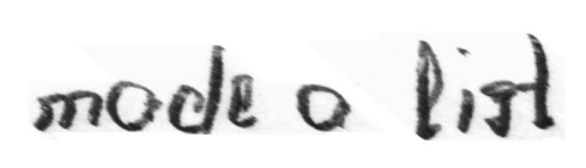 made a list